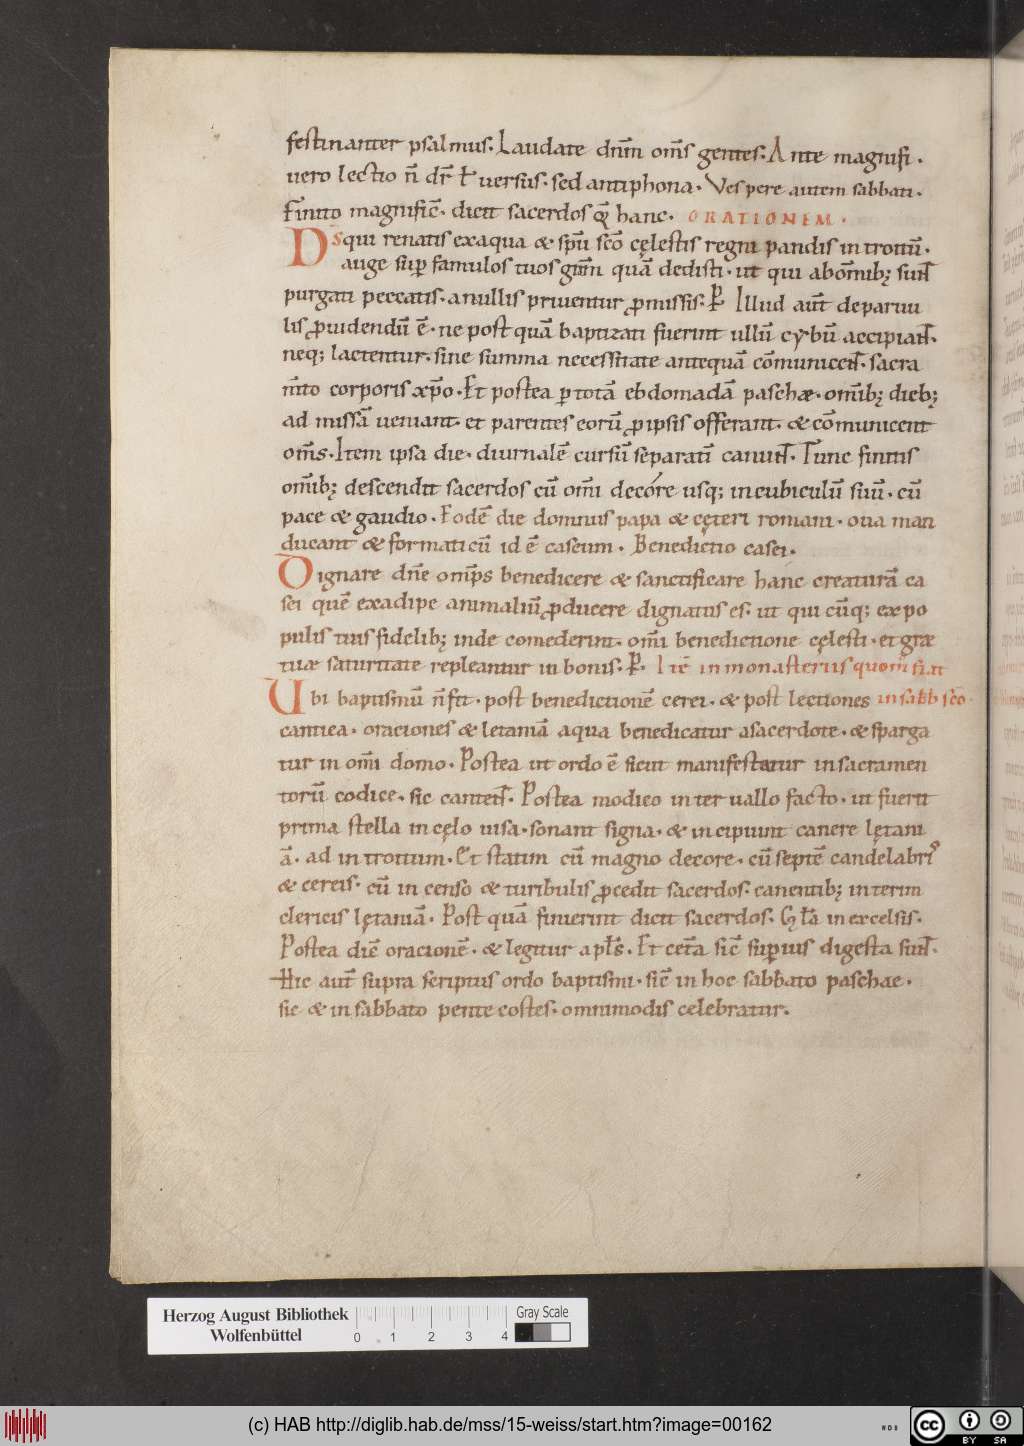 festinanter psalmus. Laudate dn̄m om̄s gentes. Ante magnifi.
uero lectio n̄ dr̄ ł uersus. sed antiphona. Vespere autem sabbati.
Finito magnific̄. dicit sacerdos hanc. ORATIONEM.
Ds̄ qui renatis ex aqua & spū scō cęlestis regni pandis introitū.
auge suꝑ famulos tuos grām quā dedisti. ut qui ab om̄ibꝫ sunt
purgati peccatis. a nullis priuentur ꝓmissis. P̄. Illud aut̄ de paruu
lis ꝓuidendū ē. ne postquā baptizati fuerint ullū cybū accipiant.
neqꝫ lactentur. sine summa necessitate antequā cōmunicent. sacra
m̄to corporis xp̄o. Et postea ꝑ totā ebdomadā paschæ. om̄ibꝫ diebꝫ
ad missā ueniant. et parentes eorū ꝓ ipsis offerant. & cōmunicent
om̄s. Item ipsa die. diurnalē cursū separatī canunt. Tunc finitis
om̄ibꝫ descendit sacerdos cū om̄i decore usqꝫ in cubiculū suū. cū
pace & gaudio. Eodē die domnus papa & cęteri romani. oua man
ducant & formaticū id ē caseum. Benedictio casei.
Dignare dn̄e omp̄s benedicere & sanctificare hanc creaturā ca
sei quē ex adipe animaliū ꝓducere dignatus es. ut qui cūqꝫ ex po
pulis tuis fidelibꝫ inde comederint. om̄i benedictione cęlesti. et græ
tuæ saturitate repleantur in bonis. P̄. Itē in monasteriis quom̄ fiat
Ubi baptismū n̄ fit. post benedictionē cerei. & post lectiones in sabb scō.
cantica. oraciones & letaniā aqua benedicatur a sacerdote. & sparga
tur in om̄i domo. Postea ut ordo ē sicut manifestatur in sacramen
torū codice. sic cantent. Postea modico interuallo facto. ut fuerit
prima stella in cęlo uisa. sonant signa. & incipiunt canere lętani
ā. ad introitum. Et statim cū magno decore. cū septē candelabris
& cereis. cū incenso & turibulis ꝓcedit sacerdos. canentibꝫ interim
clericis lętaniā. Postquā finierint dicit sacerdos. Glā in excelsis.
Postea dic̄ oracionē. & legitur apls̄. Et cet̄a sic̄ suꝑius digesta sunt.
Hic aut̄ supra scriptus ordo baptismi. sic̄ in hoc sabbato paschae.
sic & in sabbato pentecostes. omnimodis celebratur.
Herzog August Bibliothek
Wolfenbüttel
0 1 2 3 4
Gray Scale
(c) HAB http://diglib.hab.de/mss/15-weiss/start.htm?image=00162
cc BY SA